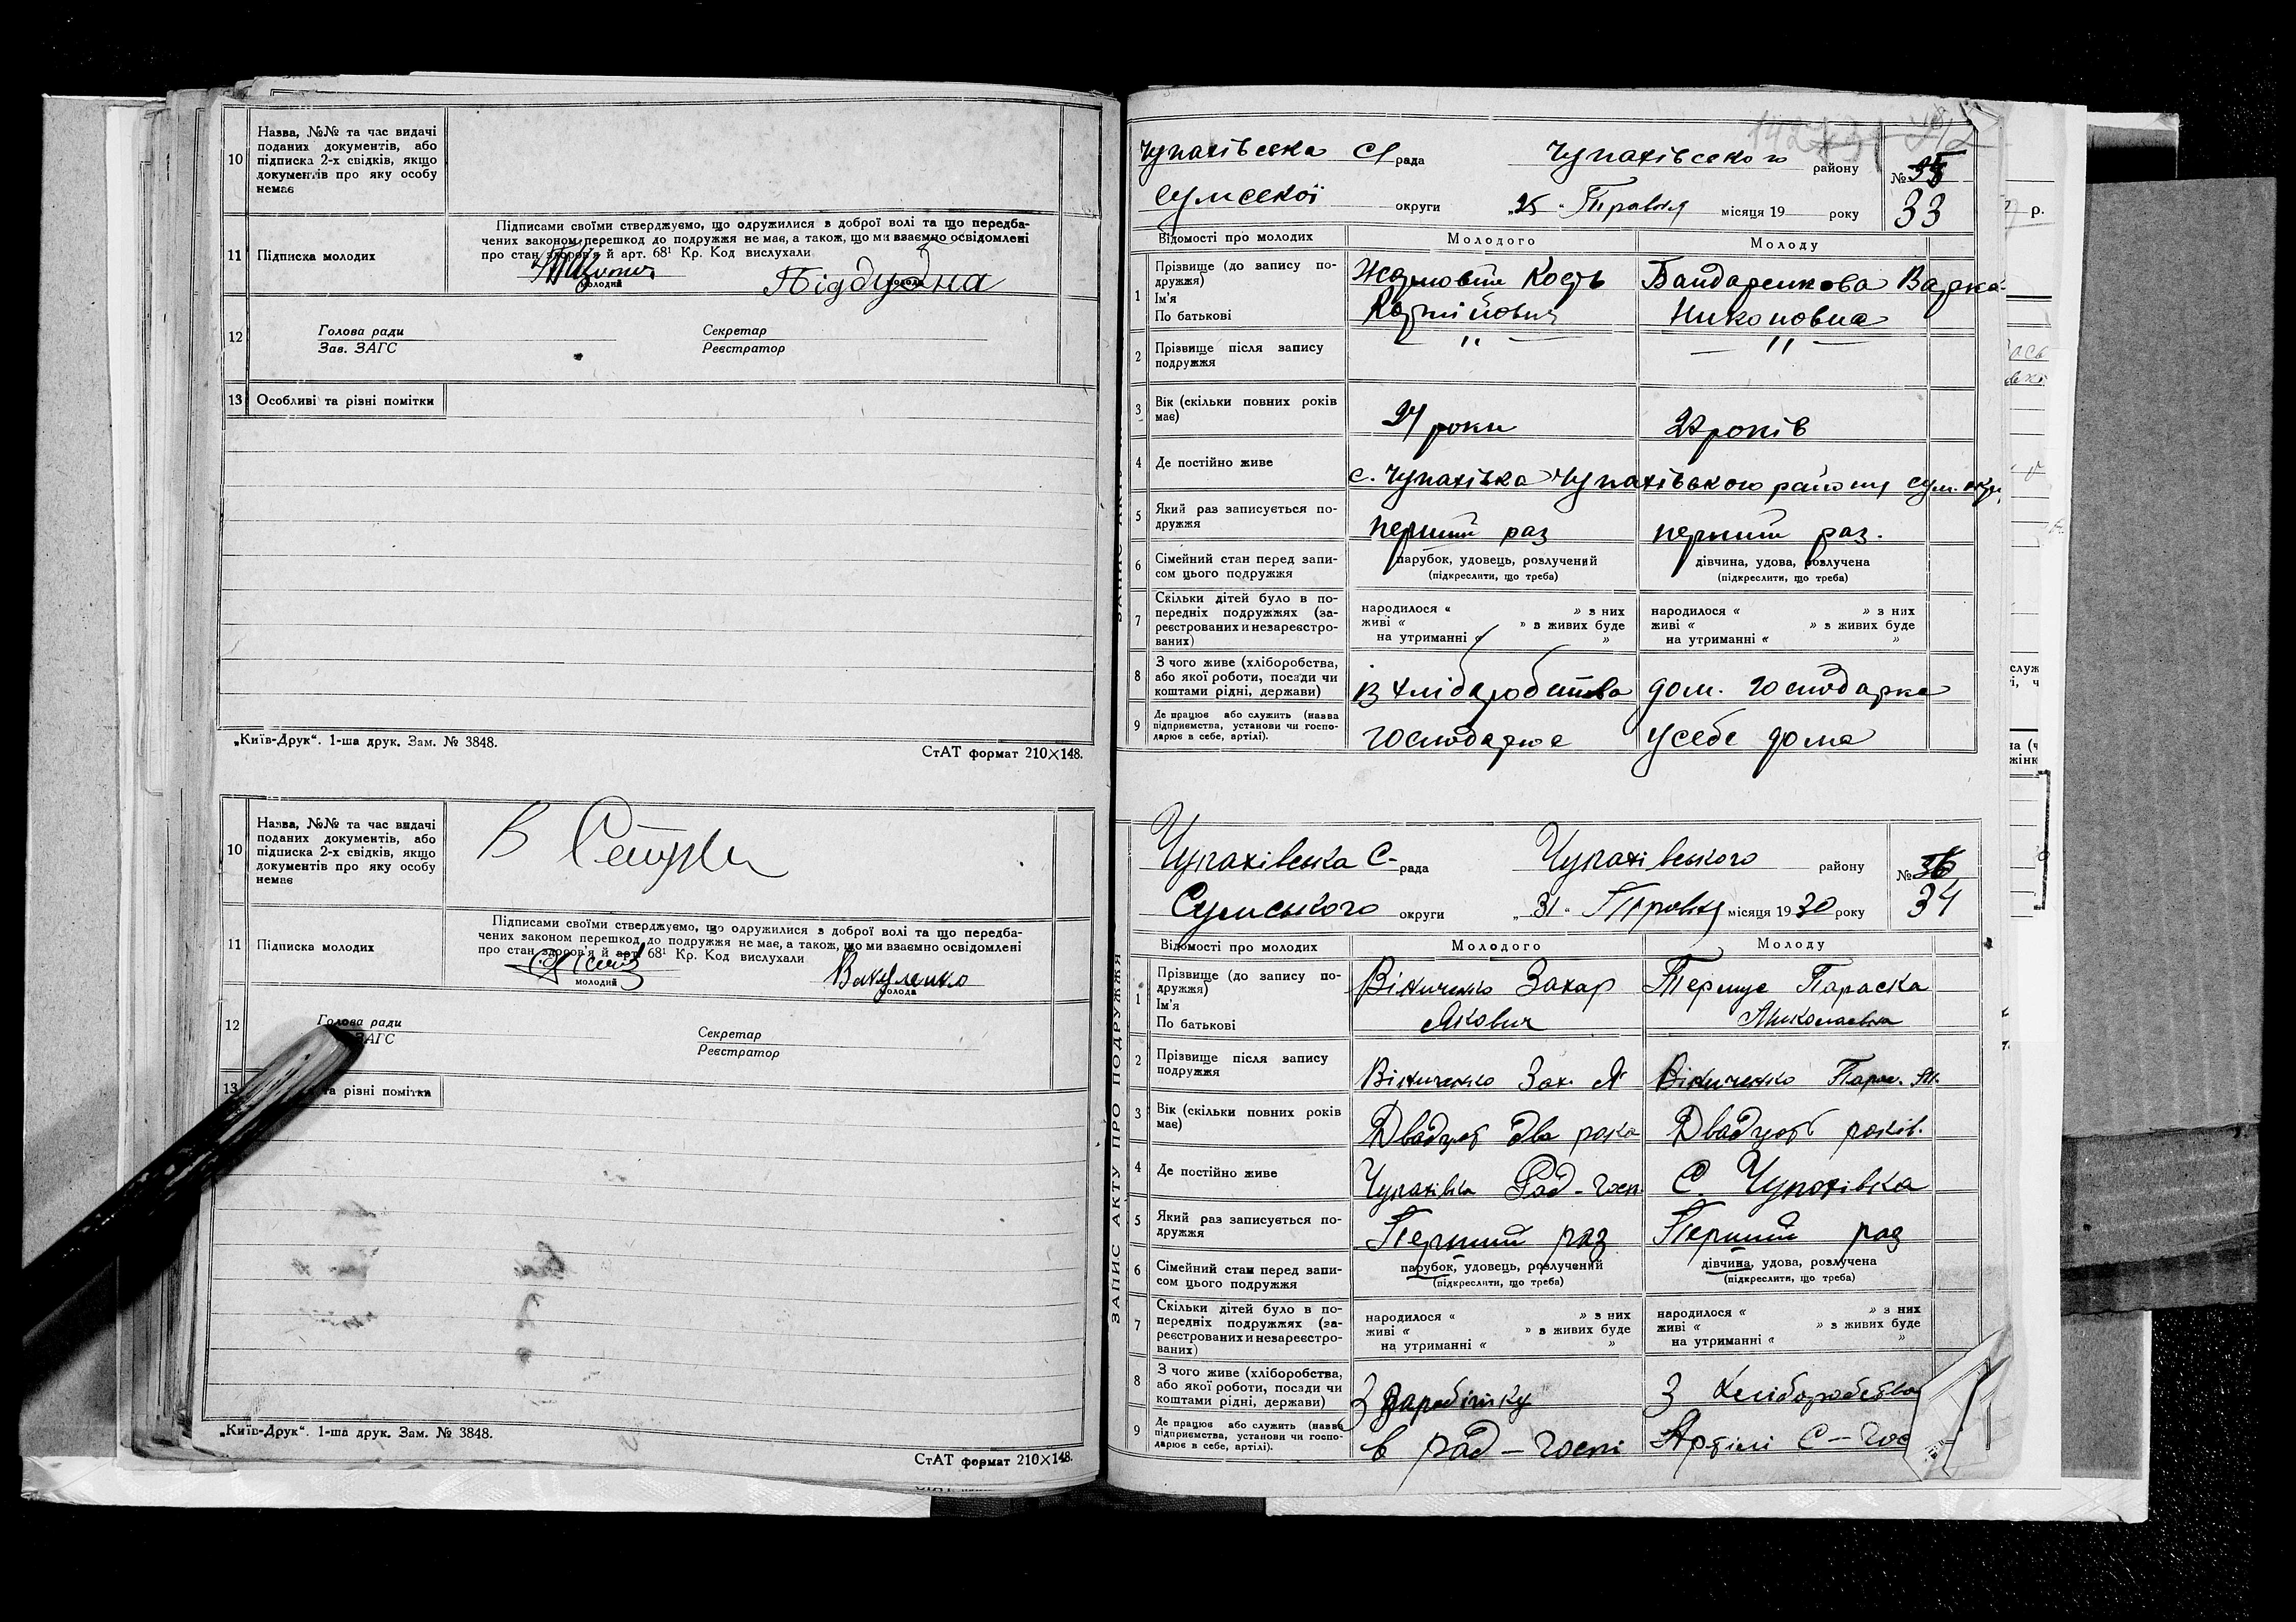 10
Назва, №№ та час видачі
поданих документів, або
підписка 2-х свідків, якщо
документів про яку особу
немає
11
Підписка молодих
Підписами своїми стверджуємо, що одружилися з доброї волі та що передба-
чених законом перешкод до подружжя не має, а також, що ми взаємно освідомлені
про стан здоров'я й арт. 68¹ Кр. Код вислухали
молодий
молода
Піддубна
12
Голова ради
Зав. ЗАГС
Секретар
Реєстратор
13
Особливі та різні помітки
„Київ-Друк“. 1-ша друк. Зам. № 3848.
СтАТ формат 210×148.
10
Назва, №№ та час видачі
поданих документів, або
підписка 2-х свідків, якщо
документів про яку особу
немає
В
11
Підписка молодих
Підписами своїми стверджуємо, що одружилися з доброї волі та що передба-
чених законом перешкод до подружжя не має, а також, що ми взаємно освідомлені
про стан здоров'я й арт. 68¹ Кр. Код вислухали
молодий
Вакуленко
молода
12
Голова ради
ЗАГС
Секретар
Реєстратор
13
та різні помітки
„Київ-Друк“. 1-ша друк. Зам. № 3848.
СтАТ формат 210×148.
Чупахівська С рада Чупахівського району №
33
Сумської округи „25“ Травня місяця 19 року
Відомості про молодих Молодого Молоду
1
Прізвище (до запису по-
дружжя)
Ім'я
По батькові
Кость
Бандаренкова Варка
Никоновна
2
Прізвище після запису
подружжя
— " — — " —
3
Вік (скільки повних років
має)
24 роки 22 років
4
Де постійно живе
с. Чупахівка Чупахівського району Сум. окр.
5
Який раз записується по-
дружжя
перший раз перший раз.
6
Сімейний стан перед запи-
сом цього подружжя
парубок, удовець, розлучений
(підкреслити, що треба)
дівчина, удова, розлучена
(підкреслити, що треба)
7
Скільки дітей було в по-
передніх подружжях (за-
реєстрованих и незареєстро-
ваних)
народилося « » з них
живі « » в живих буде
на утриманні « »
народилося « » з них
живі « » в живих буде
на утриманні « »
8
З чого живе (хліборобства,
або якої роботи, посади чи
коштами рідні, держави)
із хліборобства дом. господарка
9
Де працює або служить (назва
підприємства, установи чи госпо-
дарює в себе, артілі).
господарює у себе дома
ЗАПИС АКТУ ПРО ПОДРУЖЖЯ
Чупахівська С- рада Чупахівського району № 36
34
Сумського округи „31“ Травня місяця 1930 року
Відомості про молодих Молодого Молоду
1
Прізвище (до запису по-
дружжя)
Ім'я
По батькові
Захар
Якович
Параска
Миколаевна
2
Прізвище після запису
подружжя
Зах. Я
Парас. М.
3
Вік (скільки повних років
має)
Двадцят два рока Двадцять років.
4
Де постійно живе
Чупахівка Рад-госп. С. Чупахівка
5
Який раз записується по-
дружжя
Перший раз Перший раз
6
Сімейний стан перед запи-
сом цього подружжя
парубок, удовець, розлучений
(підкреслити, що треба)
дівчина, удова, розлучена
(підкреслити, що треба)
7
Скільки дітей було в по-
передніх подружжях (за-
реєстрованих и незареєстро-
ваних)
народилося « » з них
живі « » в живих буде
на утриманні « »
народилося « » з них
живі « » в живих буде
на утриманні « »
8
З чого живе (хліборобства,
або якої роботи, посади чи
коштами рідні, держави)
З заробітку З хліборобства
9
Де працює або служить (назва
підприємства, установи чи госпо-
дарює в себе, артілі).
в рад-госпі Артілі С-гос